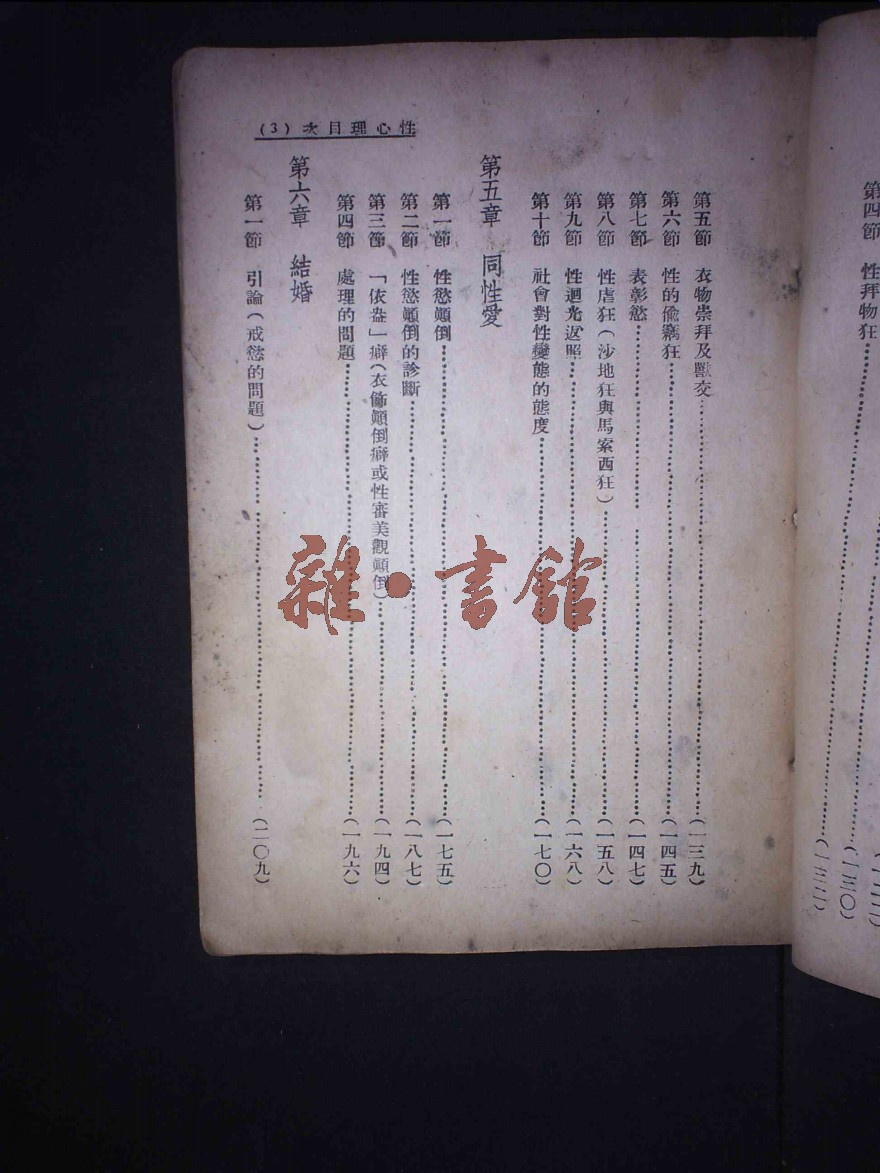 第四節 性拜物狂……(一三〇)
(一三二)
性心理目次 (3)
第五節 衣物崇拜及獸交……(一三九)
第六節 性的偷竊狂……(一四五)
第七節 表彰慾……(一四七)
第八節 性虐狂(沙地狂與馬索西狂)……(一五八)
第九節 性迴光返照……(一六八)
第十節 社會對性變態的態度……(一七〇)
第五章 同性愛
第一節 性慾顚倒……(一七五)
第二節 性慾顚倒的診斷……(一八七)
第三節 「依盎」癖(衣飾顚倒癖或性審美觀顚倒)……(一九四)
第四節 處理的問題……(一九六)
第六章 結婚
第一節 引論(戒慾的問題)……(二〇九)
雜·書館